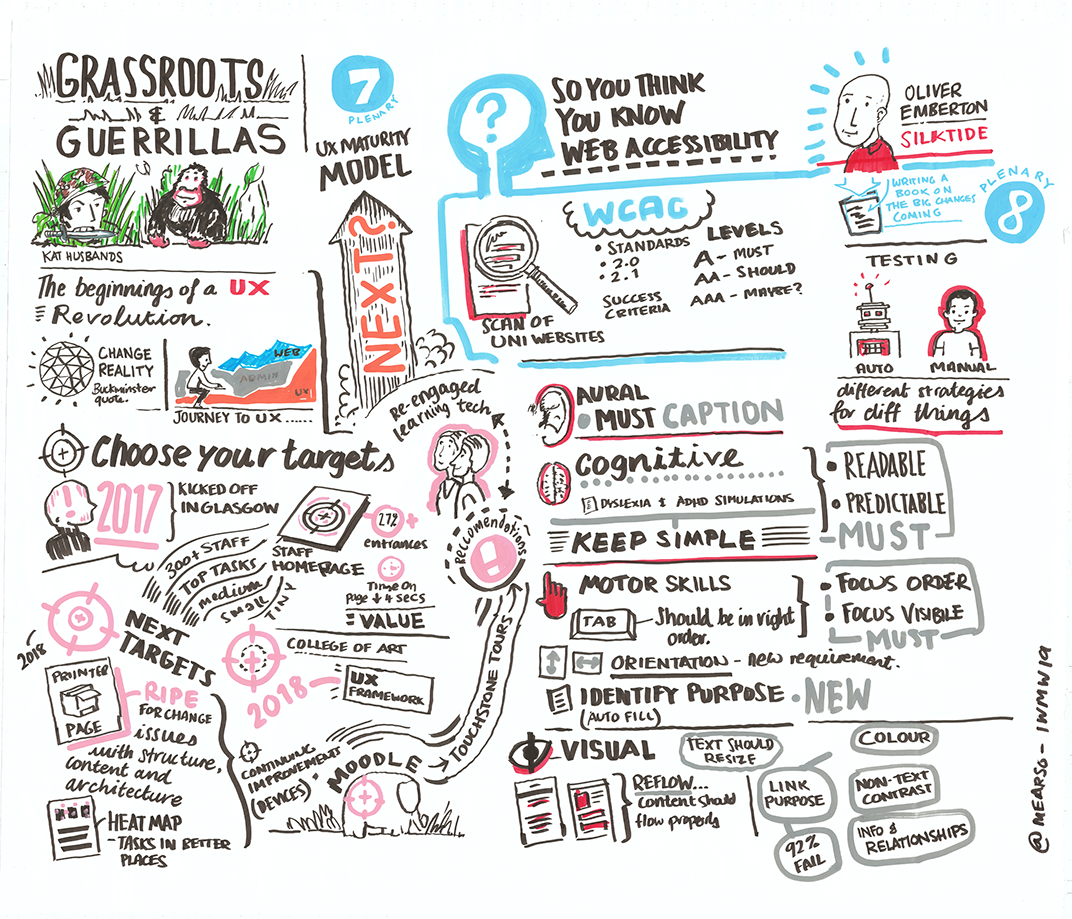 GRASSROOTS
&
GUERRILLAS
KAT HUSBANDS
7
PLENARY
UX MATURITY
MODEL
NEXT?
The beginnings of a UX
Revolution.
CHANGE
REALITY
Buckminster
quote.
WEB
ADMIN
UX
JOURNEY TO UX ......
Choose your targets
2017
KICKED OFF
IN GLASGOW
300+ STAFF
TOP TASKS
medium
small
TINY
STAFF
HOMEPAGE
27%
entrances
Time on
Page ↓ 4 secs
= VALUE
Re-engaged
learning tech
Reccomendations
!
2018
NEXT
TARGETS
PRINTER
PAGE
RIPE
FOR CHANGE
issues
with structure,
content and
architecture
HEAT MAP
- TASKS IN BETTER
PLACES
COLLEGE OF ART
2018
UX
FRAMEWORK
CONTINUING
IMPROVEMENT
(DEVICES)
MOODLE
TOUCHSTONE TOURS
?
SO YOU THINK
YOU KNOW
WEB ACCESSIBILITY
OLIVER
EMBERTON
SILKTIDE
WRITING A
BOOK ON
THE BIG CHANGES
COMING
PLENARY
8
SCAN OF
UNI WEBSITES
WCAG
• STANDARDS
• 2.0
• 2.1
SUCCESS
CRITERIA
LEVELS
A - MUST
AA - SHOULD
AAA - MAYBE?
TESTING
AUTO
MANUAL
different strategies
for diff things
AURAL
• MUST CAPTION
Cognitive
DYSLEXIA & ADHD SIMULATIONS
• READABLE
• PREDICTABLE
MUST
KEEP SIMPLE
MOTOR SKILLS
TAB
Should be in right
order.
• FOCUS ORDER
• FOCUS VISIBLE
MUST
ORIENTATION - new requirement.
IDENTIFY PURPOSE • NEW
(AUTO FILL)
VISUAL
TEXT SHOULD
RESIZE
REFLOW...
Content should
flow properly
LINK
PURPOSE
92%
FAIL
COLOUR
NON-TEXT
CONTRAST
INFO &
RELATIONSHIPS
@MEARSO - IWMW19